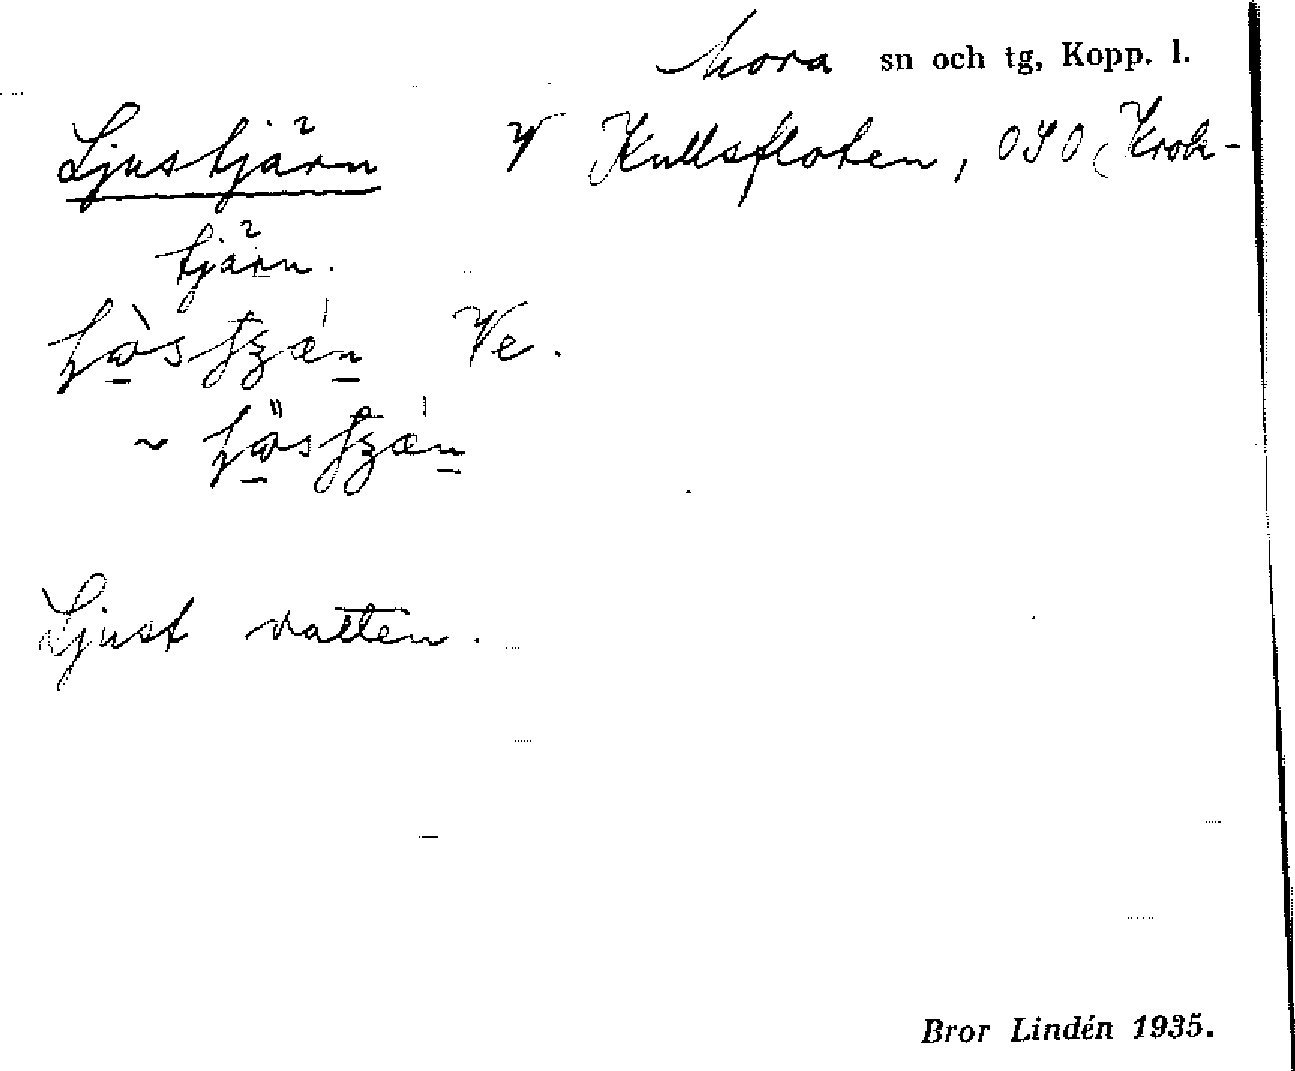 Mora sn och tg, Kopp. l.
Ljustjärn V Kullsfloten, OSO Krok-
tjärn.
Ve.
~
Ljust vatten.
Bror Lindén 1935.